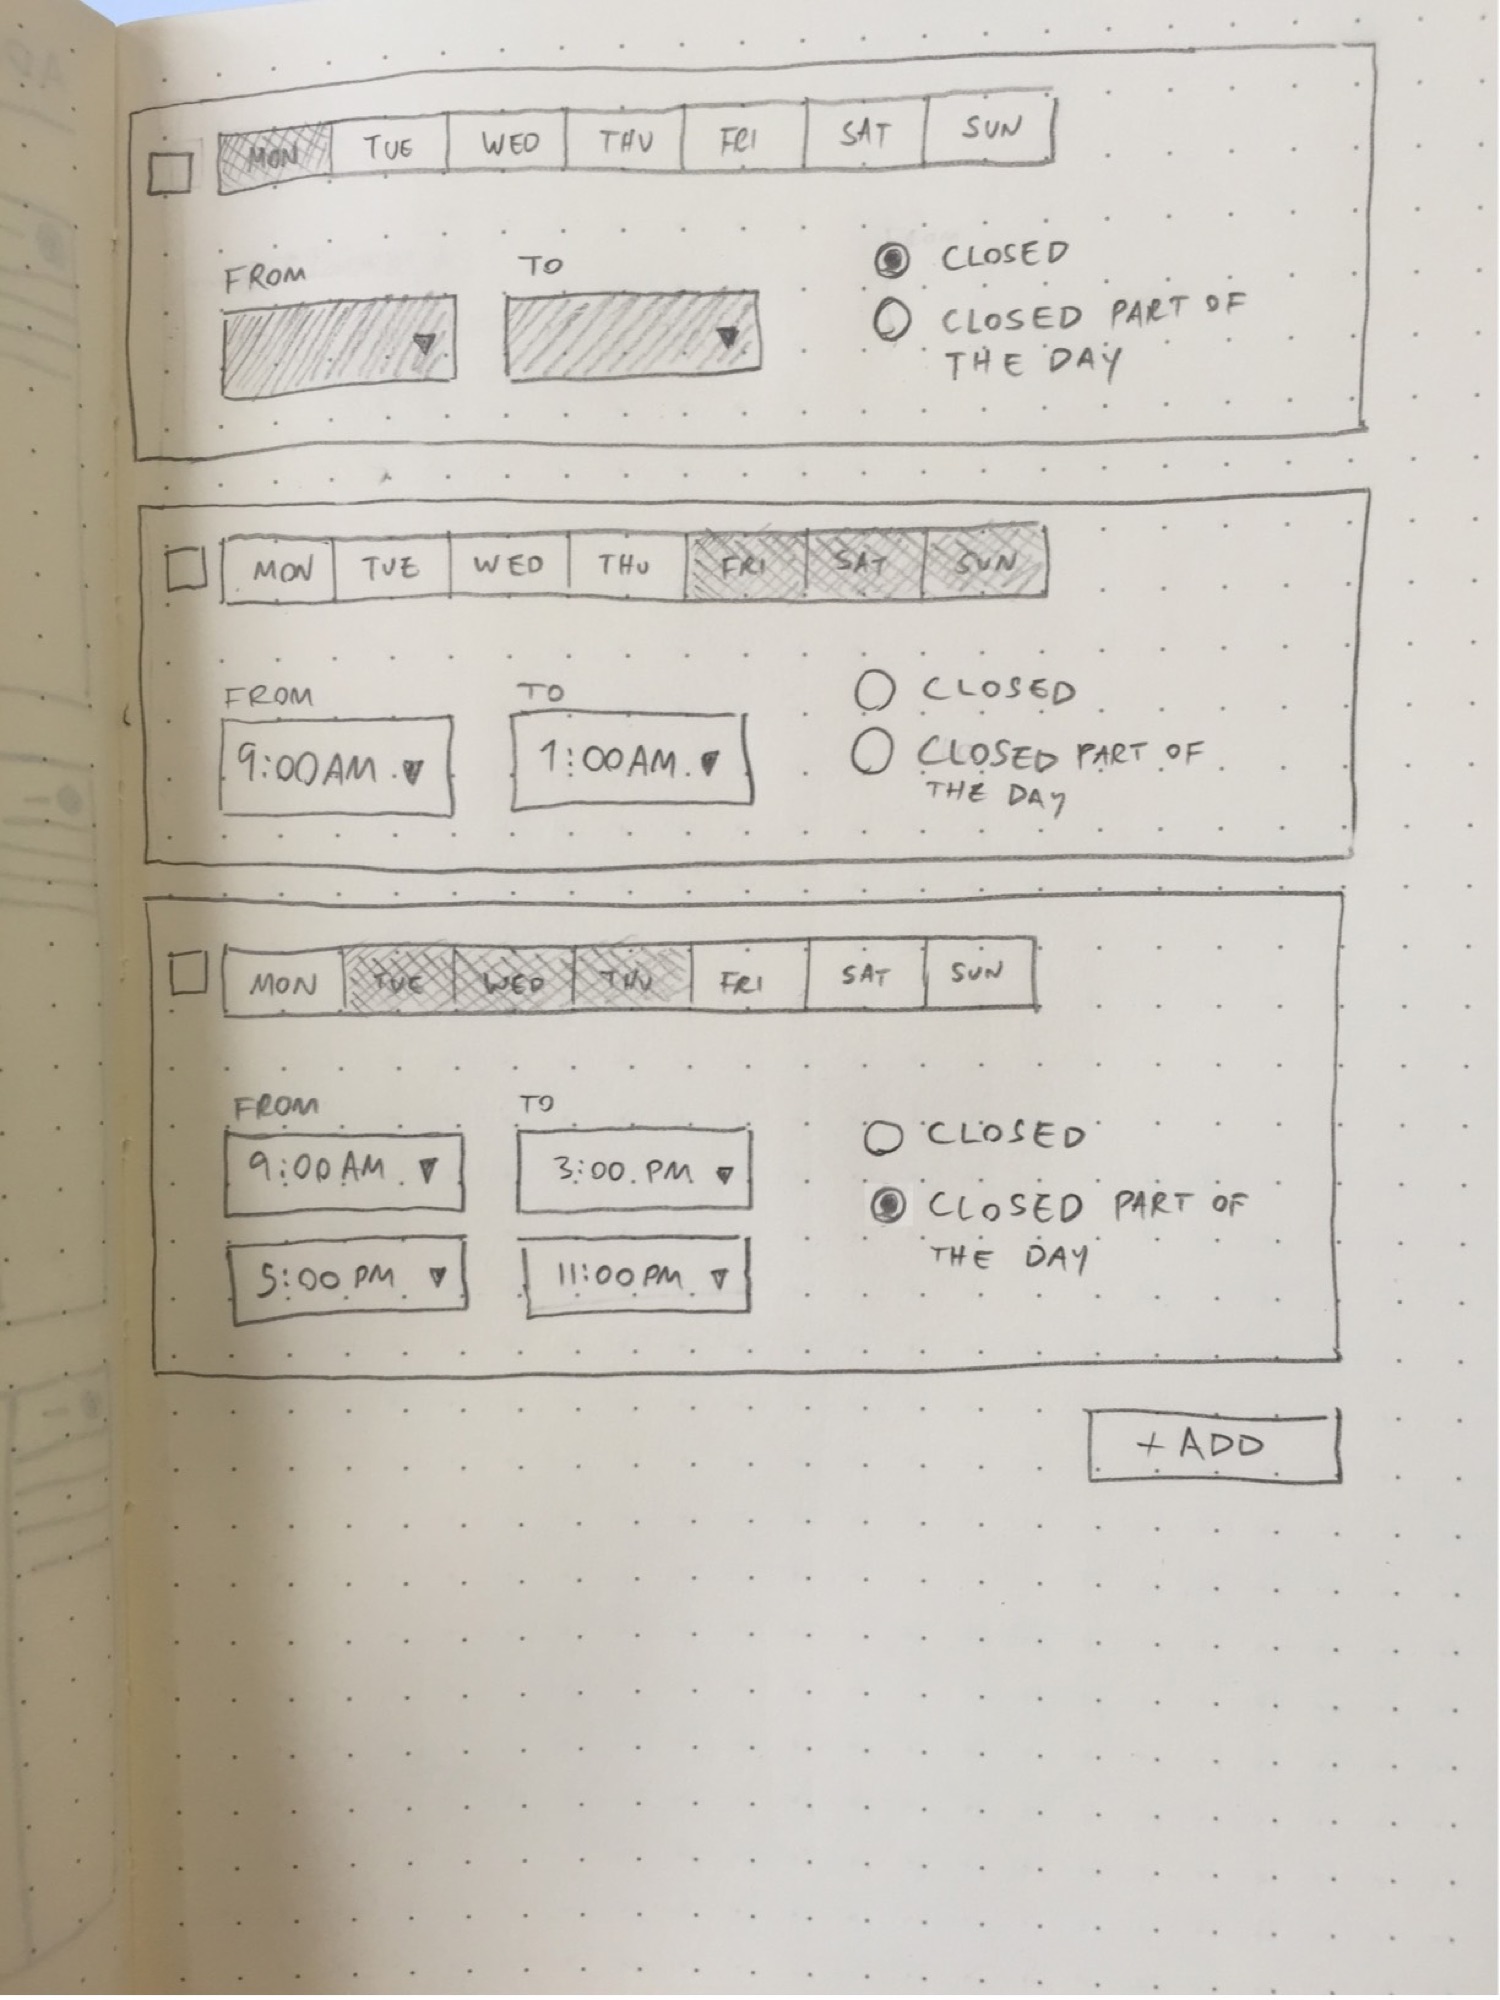 MON TUE WED THU FRI SAT SUN
FROM TO
CLOSED
CLOSED PART OF
THE DAY
MON TUE WED THU FRI SAT SUN
FROM TO
9:00AM 1:00AM
CLOSED
CLOSED PART OF
THE DAY
MON TUE WED THU FRI SAT SUN
FROM TO
9:00AM 3:00 PM
5:00 PM 11:00PM
CLOSED
CLOSED PART OF
THE DAY
+ ADD